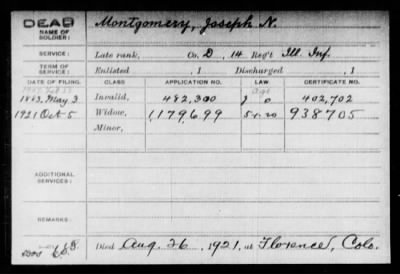 DEAD
NAME OF SOLDIER: Montgomery, Joseph N.
SERVICE: Late rank, Co. D, 14 Reg't Ill. Inf.
TERM OF SERVICE: Enlisted , 1 Discharged , 1
DATE OF FILING. CLASS APPLICATION NO. LAW CERTIFICATE NO.
1883, May 3 Invalid, 482,300 402,702
1921 Oct-5 Widow, 1179699 938705
Minor,
ADDITIONAL SERVICES:
REMARKS:
Died Aug. 26, 1921, at Florence, Colo.